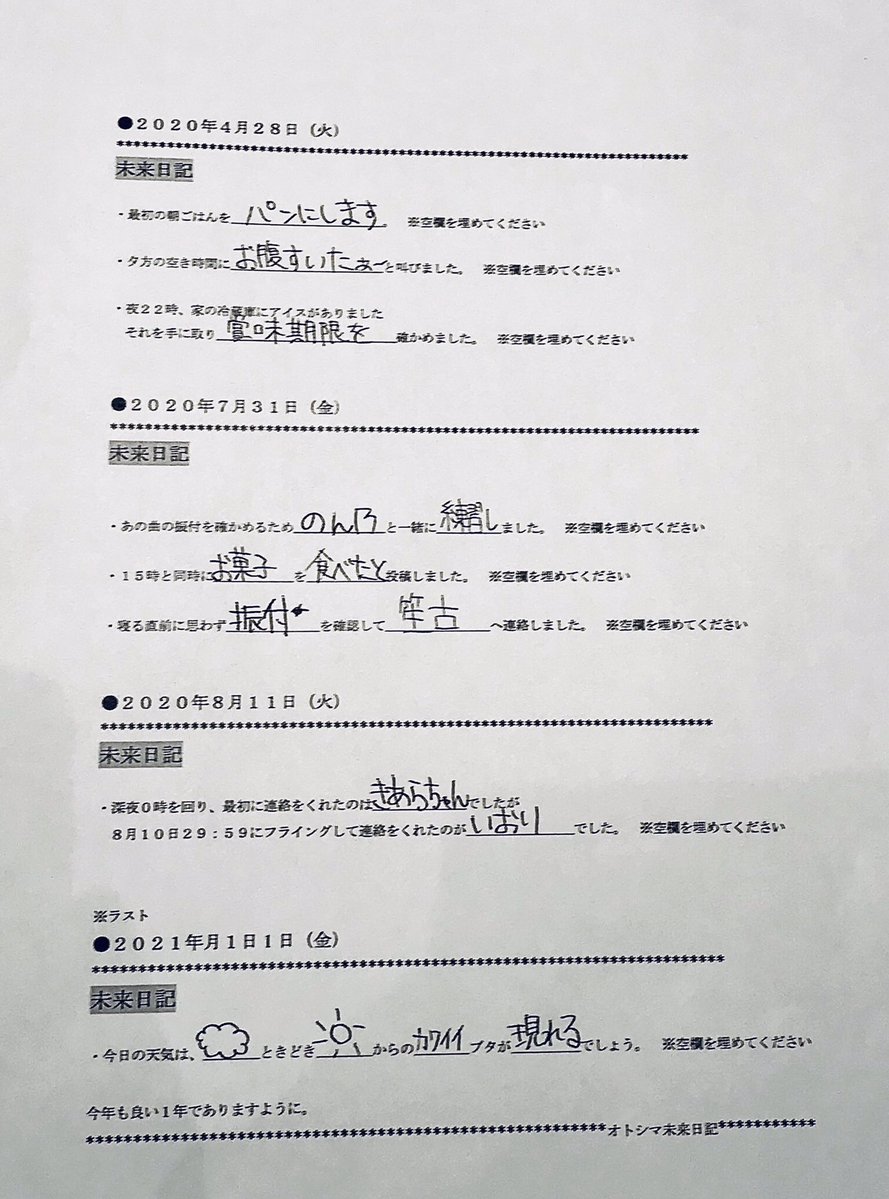 ●2020年4月28日（火）
*******************************************************************
未来日記
・最初の朝ごはんを パンにします。 ※空欄を埋めてください
・夕方の空き時間に お腹すいたぁ〜 と叫びました。 ※空欄を埋めてください
・夜22時、家の冷蔵庫にアイスがありました
それを手に取り 賞味期限を 確かめました。 ※空欄を埋めてください
●2020年7月31日（金）
*********************************************************************
未来日記
・あの曲の振付を確かめるため のん乃 と一緒に 練習し ました。 ※空欄を埋めてください
・15時と同時に お菓子 を 食べたと 投稿しました。 ※空欄を埋めてください
・寝る直前に思わず 振付 を確認して 笙古 へ連絡しました。 ※空欄を埋めてください
●2020年8月11日（火）
************************************************************************
未来日記
・深夜0時を回り、最初に連絡をくれたのは きあらちゃん でしたが
8月10日29：59にフライングして連絡をくれたのが いおり でした。 ※空欄を埋めてください
※ラスト
●2021年月1日1日（金）
**************************************************************************
未来日記
・今日の天気は、 ときどき からの カワイイ ブタが 現れる でしょう。 ※空欄を埋めてください
今年も良い1年でありますように。
*************************************************************オトシマ未来日記***********